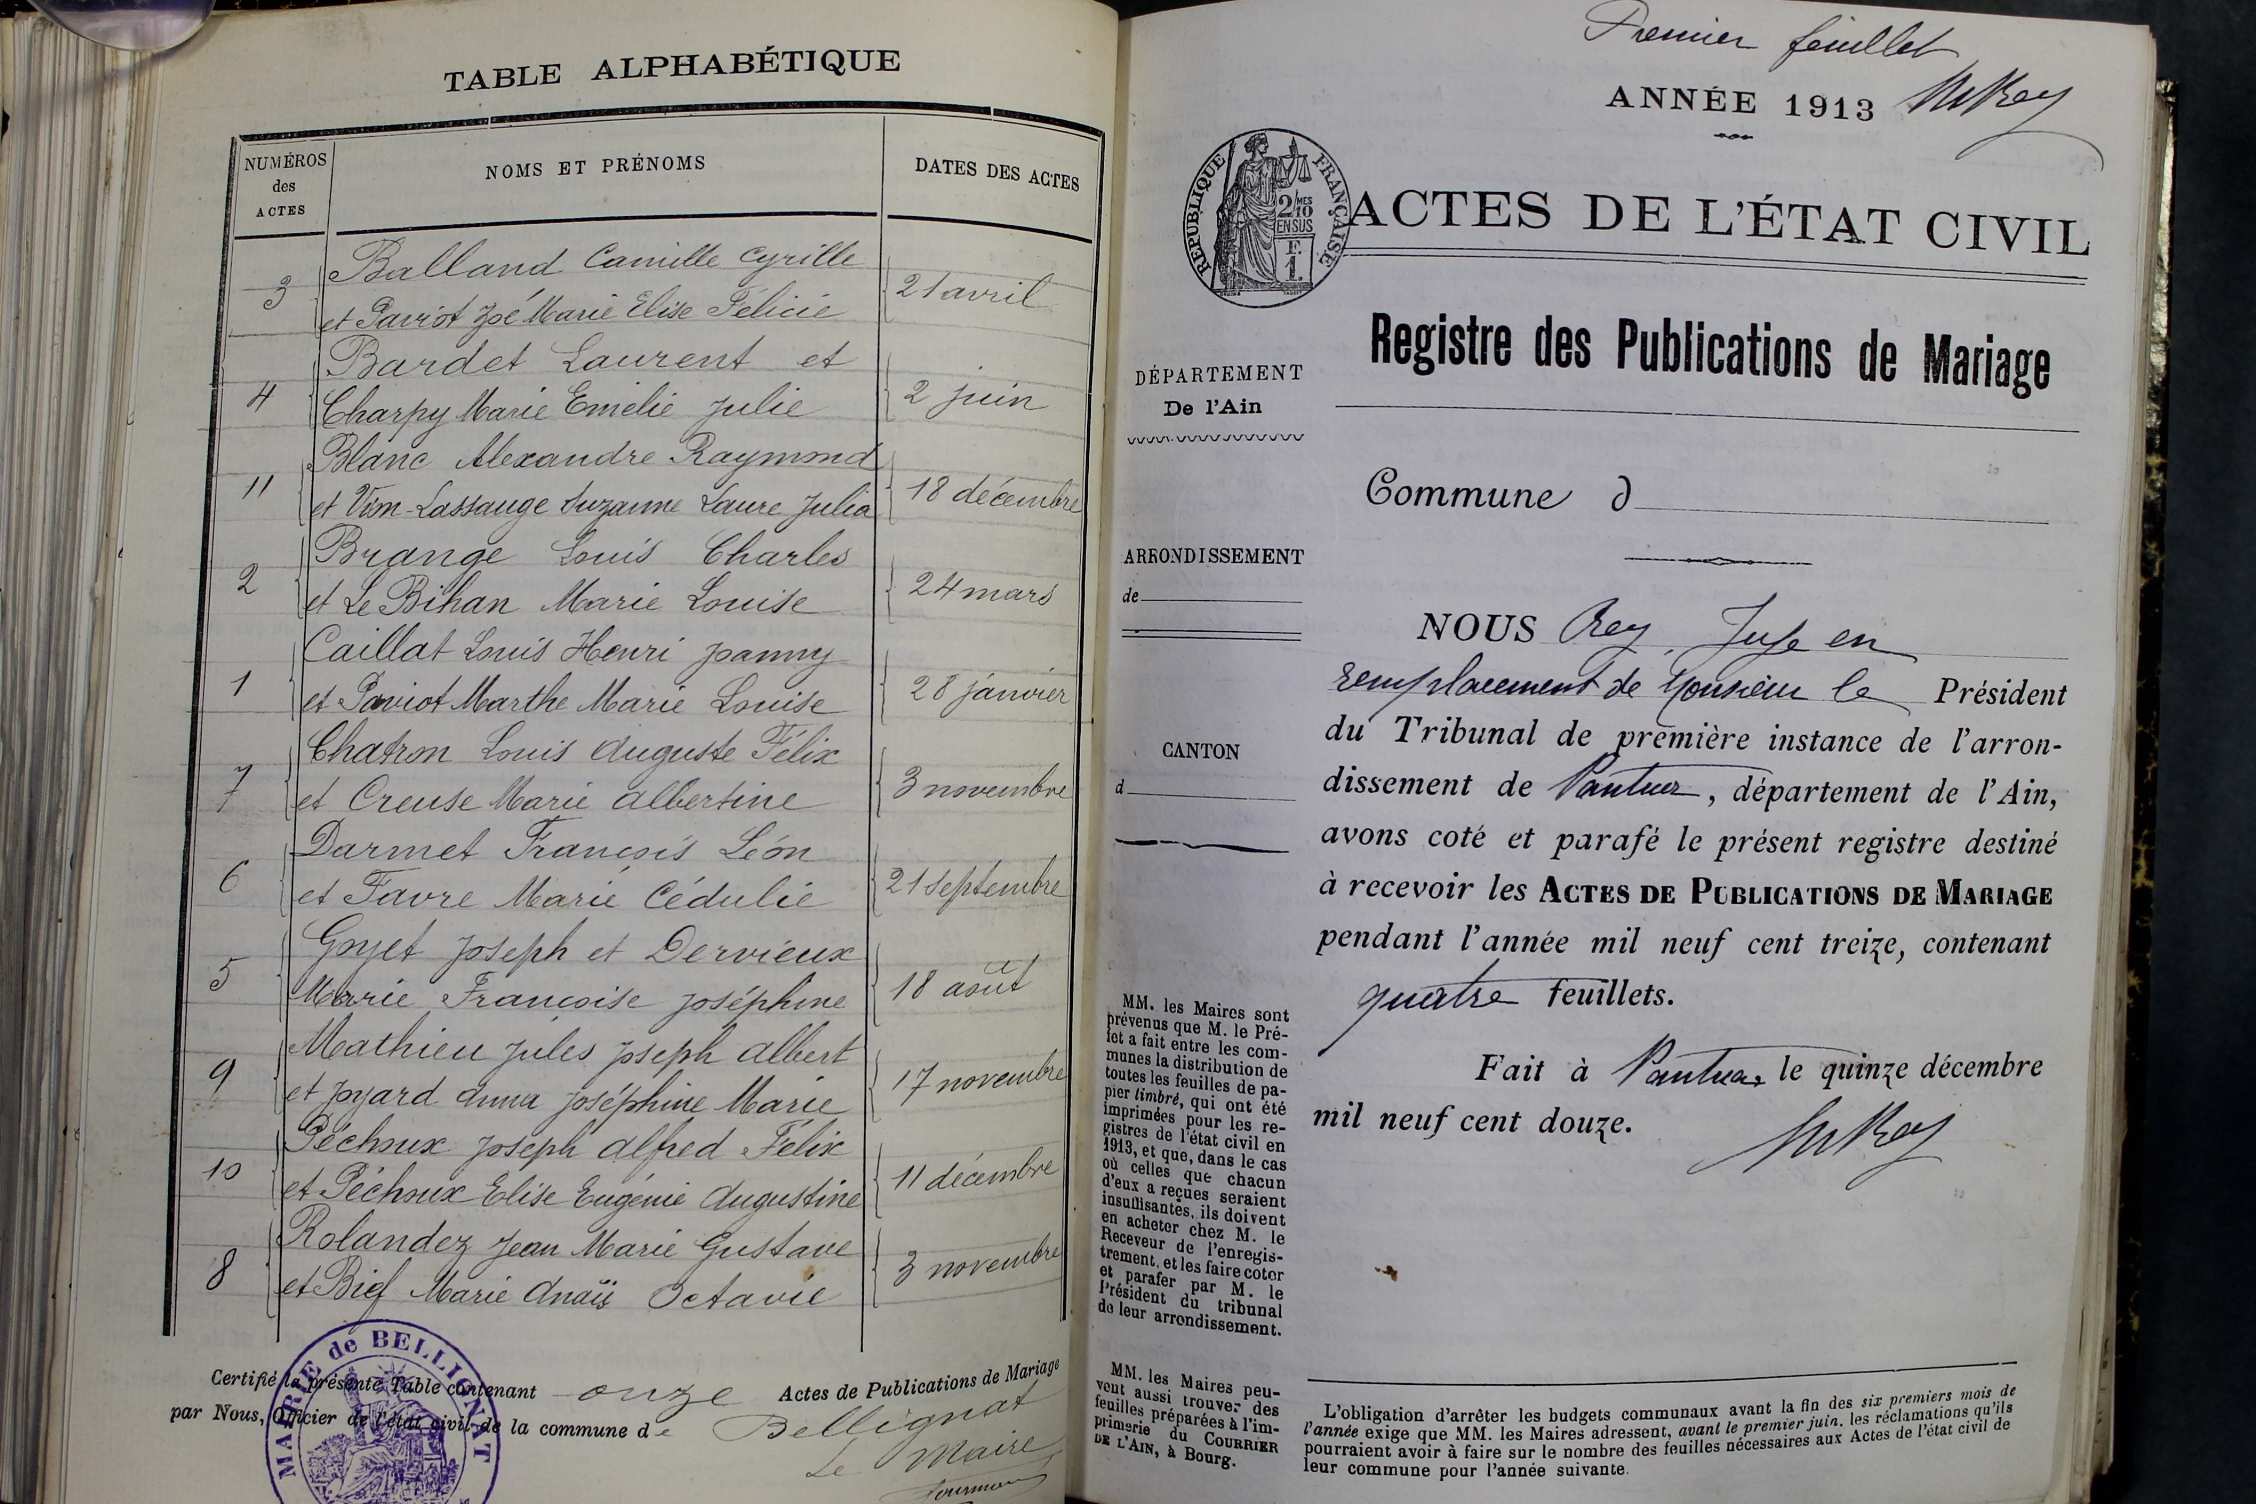 TABLE ALPHABÉTIQUE
NUMÉROS
des
ACTES
NOMS ET PRÉNOMS
DATES DES ACTES
Balland Camille Cyrille
3 et Paviot Zoé Marie Elise Félicie 21 avril
Bardet Laurent et
4 Charpy Marie Emélie Julie 2 juin
Blanc Alexandre Raymond
11 et Vion-Lassauge Suzanne Laure Julia 18 décembre
Brange Louis Charles
2 et Le Bihan Marie Louise 24 mars
Caillat Louis Henri Joanny
1 et Paviot Marthe Marie Louise 28 janvier
Chatron Louis Auguste Félix
7 et Creuse Marie Albertine 3 novembre
Darmet François Léon
6 et Favre Marie Cédulie 21 septembre
Goyet Joseph et Dervieux
5 Marie Françoise Joséphine 18 août
Mathieu Jules Joseph Albert
9 et Joyard Anna Joséphine Marie 17 novembre
Péchoux Joseph Alfred Félix
10 et Péchoux Elise Eugénie Augustine 11 décembre
Rolandez Jean Marie Gustave
8 et Bief Marie Anaïs Octavie 3 novembre
Certifié la présente Table contenant onze Actes de Publications de Mariage
par Nous, Officier de l'état civil de la commune de Bellignat
Le Maire
MAIRIE de BELLIGNAT
Premier feuillet
ANNÉE 1913
RÉPUBLIQUE FRANÇAISE
2/10
MES
EN SUS
F
1.
ACTES DE L'ÉTAT CIVIL
Registre des Publications de Mariage
DÉPARTEMENT
De l'Ain
Commune d
ARRONDISSEMENT
de
CANTON
d
NOUS Rey, Juge en
remplacement de Monsieur le Président
du Tribunal de première instance de l'arron-
dissement de Nantua, département de l'Ain,
avons coté et parafé le présent registre destiné
à recevoir les ACTES DE PUBLICATIONS DE MARIAGE
pendant l'année mil neuf cent treize, contenant
quatre feuillets.
Fait à Nantua, le quinze décembre
mil neuf cent douze.
MM. les Maires sont
prévenus que M. le Pré-
fet a fait entre les com-
munes la distribution de
toutes les feuilles de pa-
pier timbré, qui ont été
imprimées pour les re-
gistres de l'état civil en
1913, et que, dans le cas
où celles que chacun
d'eux a reçues seraient
insuffisantes, ils doivent
en acheter chez M. le
Receveur de l'enregis-
trement, et les faire coter
et parafer par M. le
Président du tribunal
de leur arrondissement.
MM. les Maires peu-
vent aussi trouver des
feuilles préparées à l'im-
primerie du COURRIER
DE L'AIN, à Bourg.
L'obligation d'arrêter les budgets communaux avant la fin des six premiers mois de
l'année exige que MM. les Maires adressent, avant le premier juin, les réclamations qu'ils
pourraient avoir à faire sur le nombre des feuilles nécessaires aux Actes de l'état civil de
leur commune pour l'année suivante.